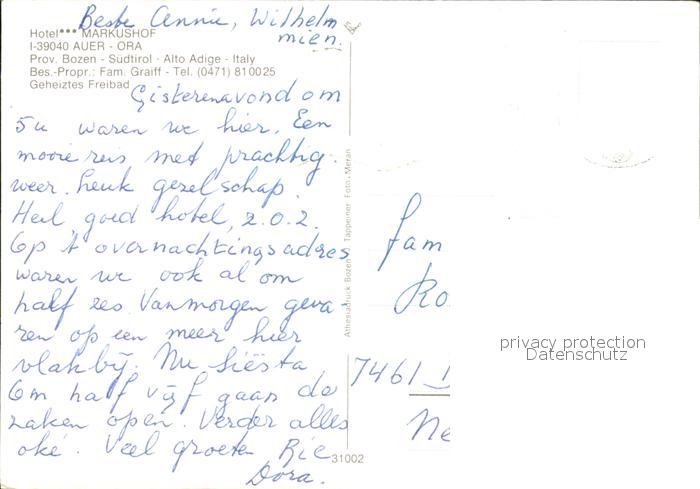 Beste Annie, Wilhelm
mien.
Hotel*** MARKUSHOF
I-39040 AUER - ORA
Prov. Bozen - Südtirol - Alto Adige - Italy
Bes.-Propr.: Fam. Graiff - Tel. (0471) 810025
Geheiztes Freibad
Gisterenavond om
5u waren we hier. Een
mooie reis met prachtig
weer. Leuk gezelschap.
Heel goed hotel, z.o.z.
Op 't overnachtingsadres
waren we ook al om
half zes. Vanmorgen geva-
ren op een meer hier
vlakbij. Nu siësta
Om half vijf gaan de
zaken open. Verder alles
oké. Veel groeten Rie
Dora.
Athesiadruck Bozen Tappeiner Foto-Meran
31002
fam
Ro
7461
Ne
privacy protection
Datenschutz